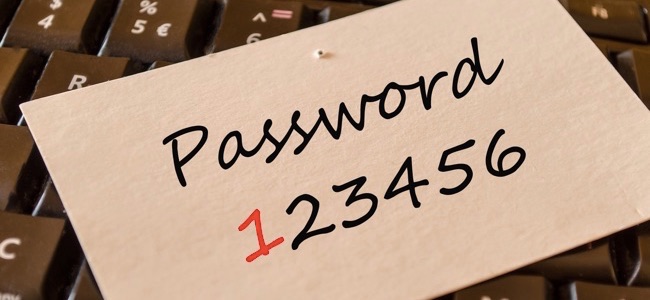 $
4
%
5 €
^
6
R
Password
123456
C